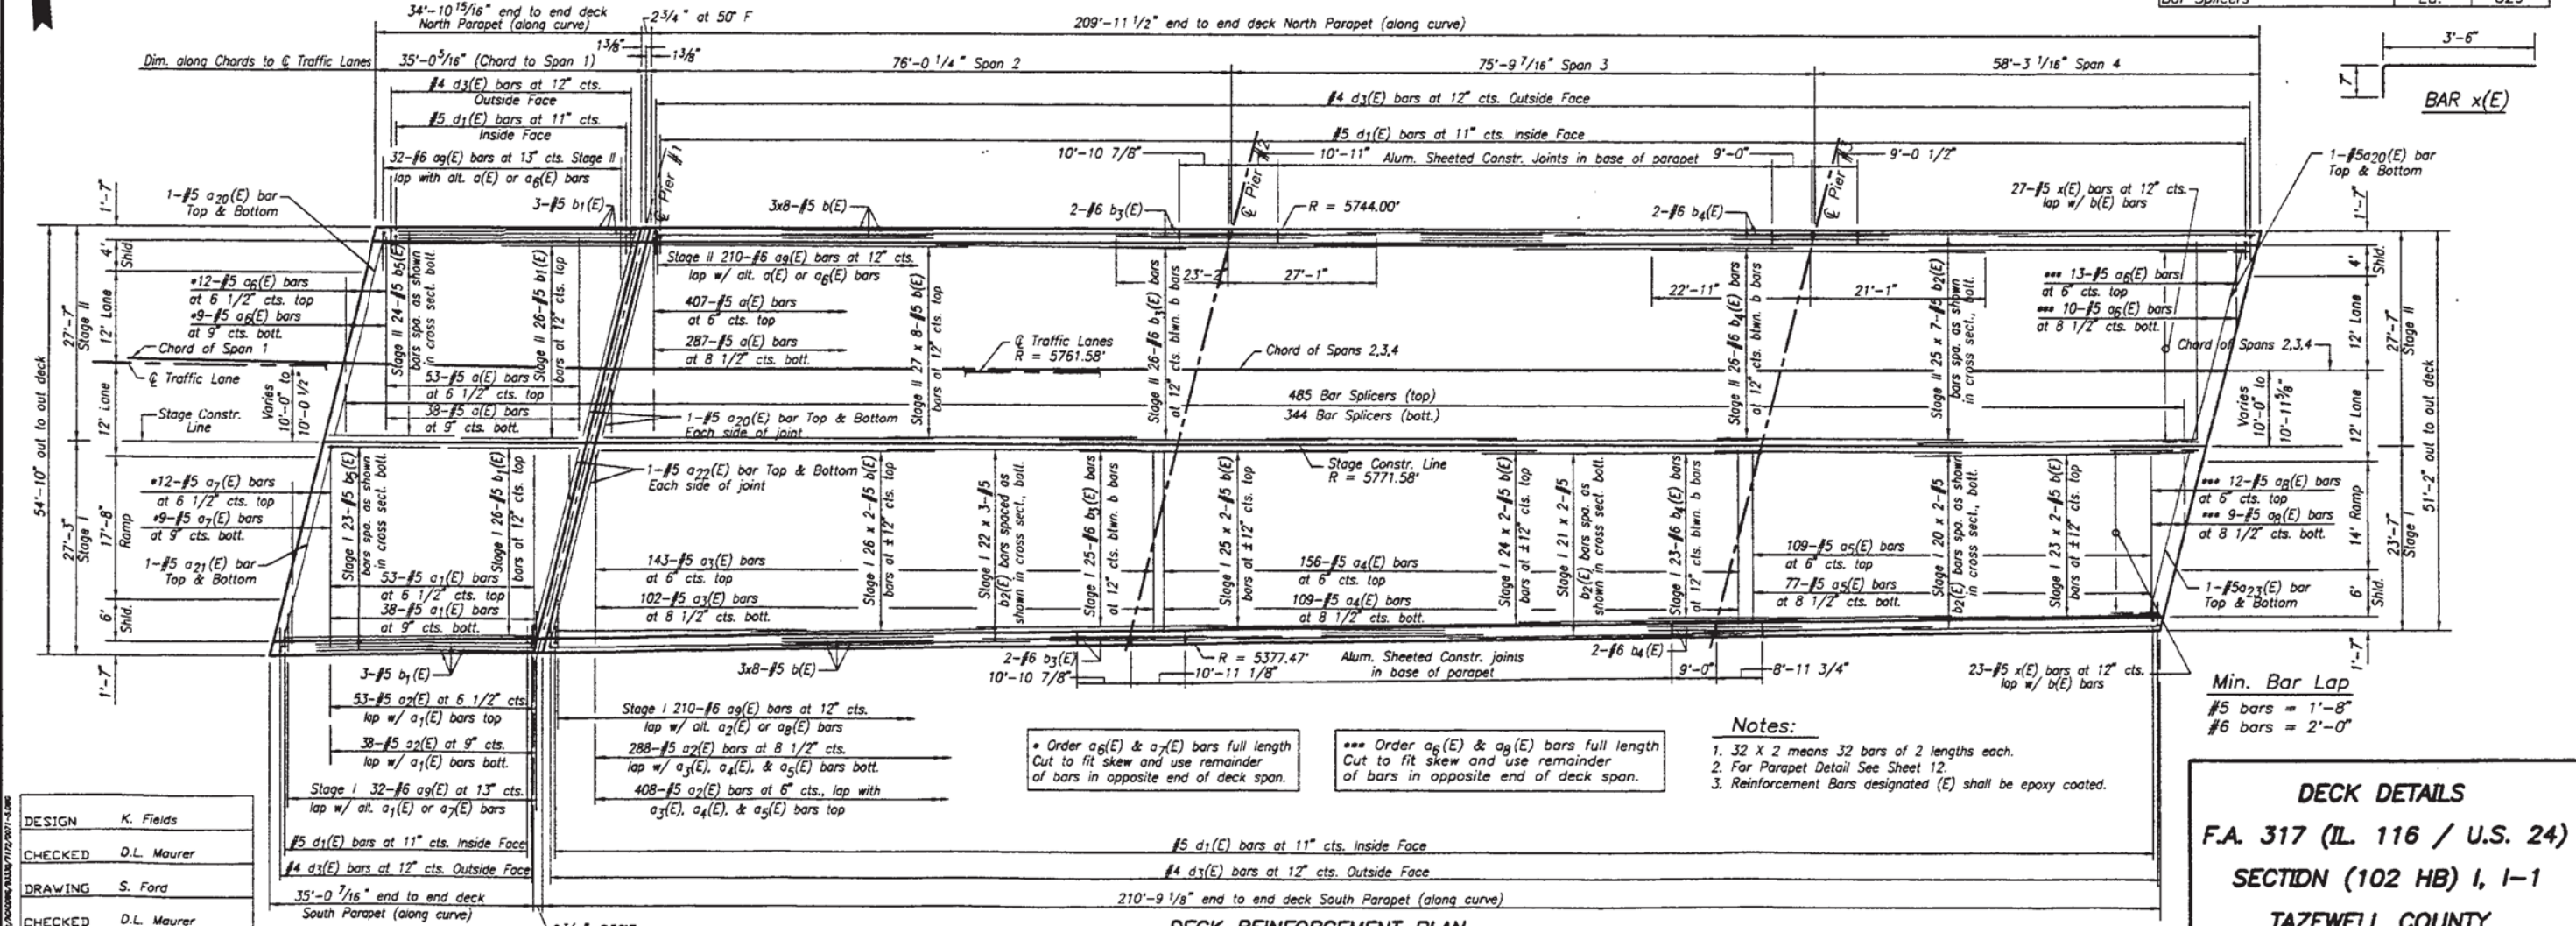 34'-10 15/16" end to end deck
North Parapet (along curve)
2 3/4" at 50° F
209'-11 1/2" end to end deck North Parapet (along curve)
1 3/8"
1 3/8"
Dim. along Chords to ℄ Traffic Lanes
35'-0 5/16" (Chord to Span 1)
76'-0 1/4" Span 2
75'-9 7/16" Span 3
58'-3 1/16" Span 4
3'-6"
7"
BAR x(E)
#4 d3(E) bars at 12" cts.
Outside Face
#4 d3(E) bars at 12" cts. Outside Face
#5 d1(E) bars at 11" cts.
Inside Face
#5 d1(E) bars at 11" cts. Inside Face
32-#6 a9(E) bars at 13" cts. Stage II
lap with alt. a(E) or a6(E) bars
℄ Pier #1
10'-10 7/8"
℄ Pier #2
10'-11"
Alum. Sheeted Constr. Joints in base of parapet
9'-0"
℄ Pier #3
9'-0 1/2"
1-#5a20(E) bar
Top & Bottom
1-#5 a20(E) bar
Top & Bottom
3-#5 b1(E)
3x8-#5 b(E)
2-#6 b3(E)
R = 5744.00'
2-#6 b4(E)
27-#5 x(E) bars at 12" cts.
lap w/ b(E) bars
1'-7"
1'-7"
54'-10" out to out deck
27'-7"
Stage II
4'
Shld
12' Lane
12' Lane
27'-3"
Stage I
17'-8"
Ramp
6'
Shld.
1'-7"
•12-#5 a6(E) bars
at 6 1/2" cts. top
•9-#5 a6(E) bars
at 9" cts. bott.
Chord of Span 1
℄ Traffic Lane
Stage Constr.
Line
Varies
10'-0" to
10'-0 1/2"
Stage II 24-#5 b5(E)
bars spa. as shown
in cross sect. bott.
Stage II 26-#5 b1(E)
bars at 12" cts. top
53-#5 a(E) bars
at 6 1/2" cts. top
38-#5 a(E) bars
at 9" cts. bott.
Stage II 210-#6 a9(E) bars at 12" cts.
lap w/ alt. a(E) or a6(E) bars
407-#5 a(E) bars
at 6" cts. top
287-#5 a(E) bars
at 8 1/2" cts. bott.
Stage II 27 x 8-#5 b(E)
bars at 12" cts. top
℄ Traffic Lanes
R = 5761.58'
23'-2"
27'-1"
Stage II 26-#6 b3(E) bars
at 12" cts. btwn. b bars
Chord of Spans 2,3,4
22'-11"
21'-1"
Stage II 26-#6 b4(E) bars
at 12" cts. btwn. b bars
Stage II 25 x 7-#5 b2(E)
bars spa. as shown
in cross sect., bott.
••• 13-#5 a6(E) bars
at 6" cts. top
••• 10-#5 a6(E) bars
at 8 1/2" cts. bott.
Chord of Spans 2,3,4
485 Bar Splicers (top)
344 Bar Splicers (bott.)
1-#5 a20(E) bar Top & Bottom
Each side of joint
Varies
10'-0" to
10'-11 5/8"
4'
Shld.
12' Lane
12' Lane
27'-7"
Stage II
14' Ramp
23'-7"
Stage I
6'
Shld.
51'-2" out to out deck
1'-7"
•12-#5 a7(E) bars
at 6 1/2" cts. top
•9-#5 a7(E) bars
at 9" cts. bott.
1-#5 a21(E) bar
Top & Bottom
Stage I 23-#5 b5(E)
bars spa. as shown
in cross sect. bott.
Stage I 26-#5 b1(E)
bars at 12" cts. top
53-#5 a1(E) bars
at 6 1/2" cts. top
38-#5 a1(E) bars
at 9" cts. bott.
1-#5 a22(E) bar Top & Bottom
Each side of joint
143-#5 a3(E) bars
at 6" cts. top
102-#5 a3(E) bars
at 8 1/2" cts. bott.
Stage I 26 x 2-#5 b(E)
bars at ±12" cts. top
Stage I 22 x 3-#5
b2(E) bars spaced as
shown in cross sect., bott.
Stage I 25-#6 b3(E) bars
at 12" cts. btwn. b bars
Stage I 25 x 2-#5 b(E)
bars at ±12" cts. top
Stage Constr. Line
R = 5771.58'
156-#5 a4(E) bars
at 6" cts. top
109-#5 a4(E) bars
at 8 1/2" cts. bott.
Stage I 24 x 2-#5 b(E)
bars at ±12" cts. top
Stage I 21 x 2-#5
b2(E) bars spa. as
shown in cross sect. bott.
Stage I 23-#6 b4(E) bars
at 12" cts. btwn. b bars
109-#5 a5(E) bars
at 6" cts. top
77-#5 a5(E) bars
at 8 1/2" cts. bott.
Stage I 20 x 2-#5
b2(E) bars spa. as shown
in cross sect., bott.
Stage I 23 x 2-#5 b(E)
bars at ±12" cts. top
••• 12-#5 a8(E) bars
at 6" cts. top
••• 9-#5 a8(E) bars
at 8 1/2" cts. bott.
1-#5a23(E) bar
Top & Bottom
3-#5 b1(E)
3x8-#5 b(E)
2-#6 b3(E)
10'-10 7/8"
R = 5377.47'
10'-11 1/8"
Alum. Sheeted Constr. joints
in base of parapet
2-#6 b4(E)
9'-0"
8'-11 3/4"
23-#5 x(E) bars at 12" cts.
lap w/ b(E) bars
Min. Bar Lap
#5 bars = 1'-8"
#6 bars = 2'-0"
53-#5 a2(E) at 6 1/2" cts.
lap w/ a1(E) bars top
38-#5 a2(E) at 9" cts.
lap w/ a1(E) bars bott.
Stage I 32-#6 a9(E) at 13" cts.
lap w/ alt. a1(E) or a7(E) bars
Stage I 210-#6 a9(E) bars at 12" cts.
lap w/ alt. a2(E) or a8(E) bars
288-#5 a2(E) bars at 8 1/2" cts.
lap w/ a3(E), a4(E), & a5(E) bars bott.
408-#5 a2(E) bars at 6" cts., lap with
a3(E), a4(E), & a5(E) bars top
• Order a6(E) & a7(E) bars full length
Cut to fit skew and use remainder
of bars in opposite end of deck span.
••• Order a6(E) & a8(E) bars full length
Cut to fit skew and use remainder
of bars in opposite end of deck span.
Notes:
1. 32 X 2 means 32 bars of 2 lengths each.
2. For Parapet Detail See Sheet 12.
3. Reinforcement Bars designated (E) shall be epoxy coated.
#5 d1(E) bars at 11" cts. Inside Face
#5 d1(E) bars at 11" cts. Inside Face
#4 d3(E) bars at 12" cts. Outside Face
#4 d3(E) bars at 12" cts. Outside Face
35'-0 7/16" end to end deck
South Parapet (along curve)
210'-9 1/8" end to end deck South Parapet (along curve)
DESIGN K. Fields
CHECKED D.L. Maurer
DRAWING S. Ford
CHECKED D.L. Maurer
DECK DETAILS
F.A. 317 (IL. 116 / U.S. 24)
SECTION (102 HB) I, I-1
TAZEWELL COUNTY
DECK REINFORCEMENT PLAN